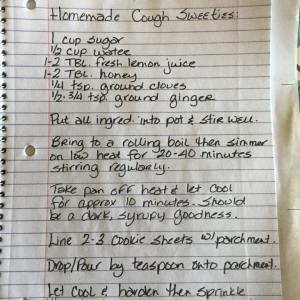 Homemade Cough Sweeties:
1 cup sugar
1/2 cup water
1-2 TBL. fresh lemon juice
1-2 TBL. honey
1/4 tsp. ground cloves
1/2-3/4 tsp. ground ginger
Put all ingred. into pot & stir well.
Bring to a rolling boil then simmer
on low heat for ~20-40 minutes
stirring regularly.
Take pan off heat & let cool
for approx 10 minutes. Should
be a dark, syrupy goodness.
Line 2-3 cookie sheets w/parchment.
Drop/Pour by teaspoon onto parchment.
Let cool & harden then sprinkle